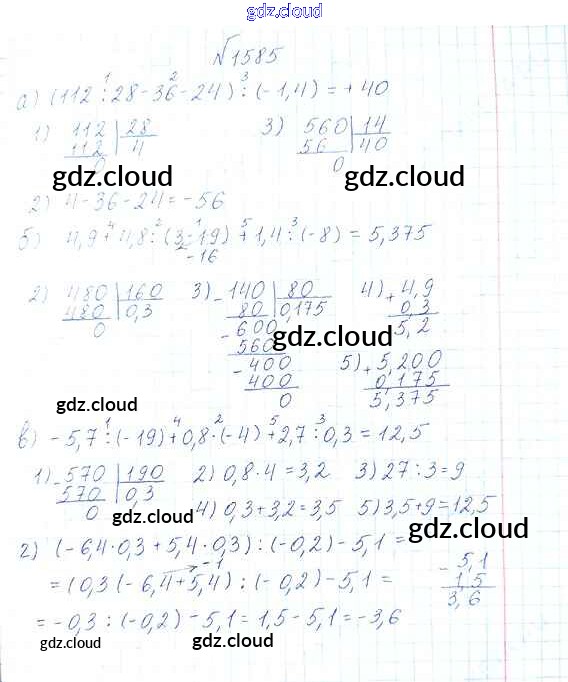 gdz.cloud
№1585
а) (112 : 28 - 36 - 24) : (-1,4) = +40
1) 112 | 28    3) 560 | 14
112 | 4    56 | 40
0    0
gdz.cloud gdz.cloud
2) 4 - 36 - 24 = -56
б) 4,9 + 4,8 : (3 - 19) + 1,4 : (-8) = 5,375
-16
2) 480 | 160    3) - 140 | 80    4) + 4,9
480 | 0,3    80 | 0,175    0,3
0    - 600    5,2
560
gdz.cloud
- 400    5) + 5,200
400    0,175
0    5,375
gdz.cloud
в) -5,7 : (-19) + 0,8 · (-4) + 2,7 : 0,3 = 12,5
1) - 570 | 190    2) 0,8 · 4 = 3,2    3) 27 : 3 = 9
570 | 0,3
0    4) 0,3 + 3,2 = 3,5    5) 3,5 + 9 = 12,5
gdz.cloud gdz.cloud
г) (-6,4 · 0,3 + 5,4 · 0,3) : (-0,2) - 5,1 =
-1
= (0,3 (-6,4 + 5,4) : (-0,2) - 5,1 =    - 5,1
1,5
3,6
= -0,3 : (-0,2) - 5,1 = 1,5 - 5,1 = -3,6
gdz.cloud gdz.cloud gdz.cloud